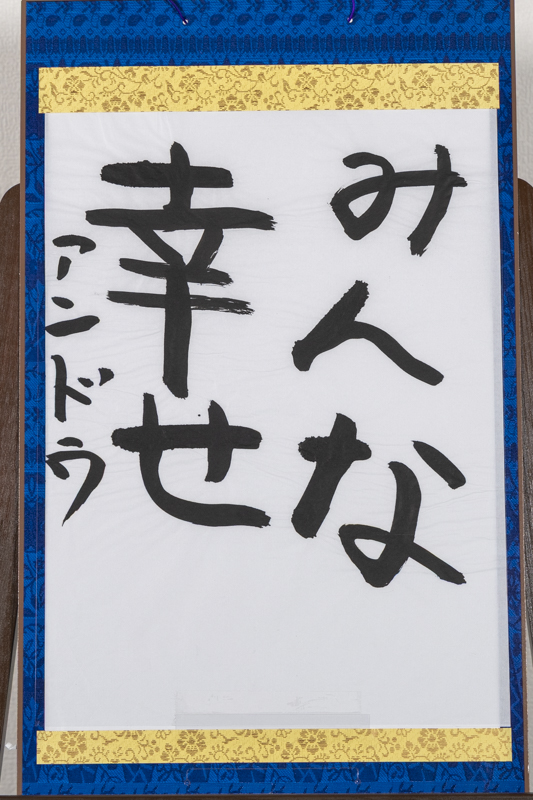 みんな
幸せ
アンドウ